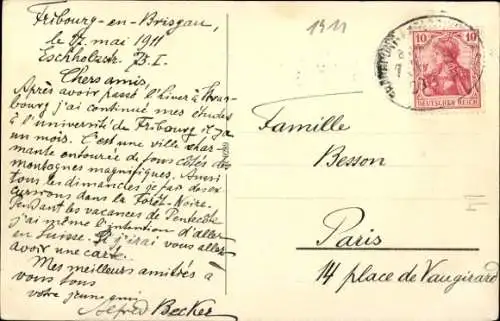 Fribourg-en-Brisgau,
le 17. mai 1911
Eschholzstr. 75. I.
Chers amis,
Après avoir passé l'hiver à Stras-
bourg j'ai continué mes études
à l'université de Fribourg il y a
un mois. C'est une ville char-
mante entourée de tous côtés des
montagnes magnifiques. Aussi
tous les dimanches je fais des ex-
cursions dans la Forêt-Noire.
Pendant les vacances de Pentecôte
j'ai même l'intention d'aller
en Suisse. Si j'irai vous allez
avoir une carte.
Mes meilleurs amitiés à
vous tous
votre jeune ami
Alfred Becker
1911
10 10
DEUTSCHES REICH
Famille
Besson
Paris
14 place de Vaugirard